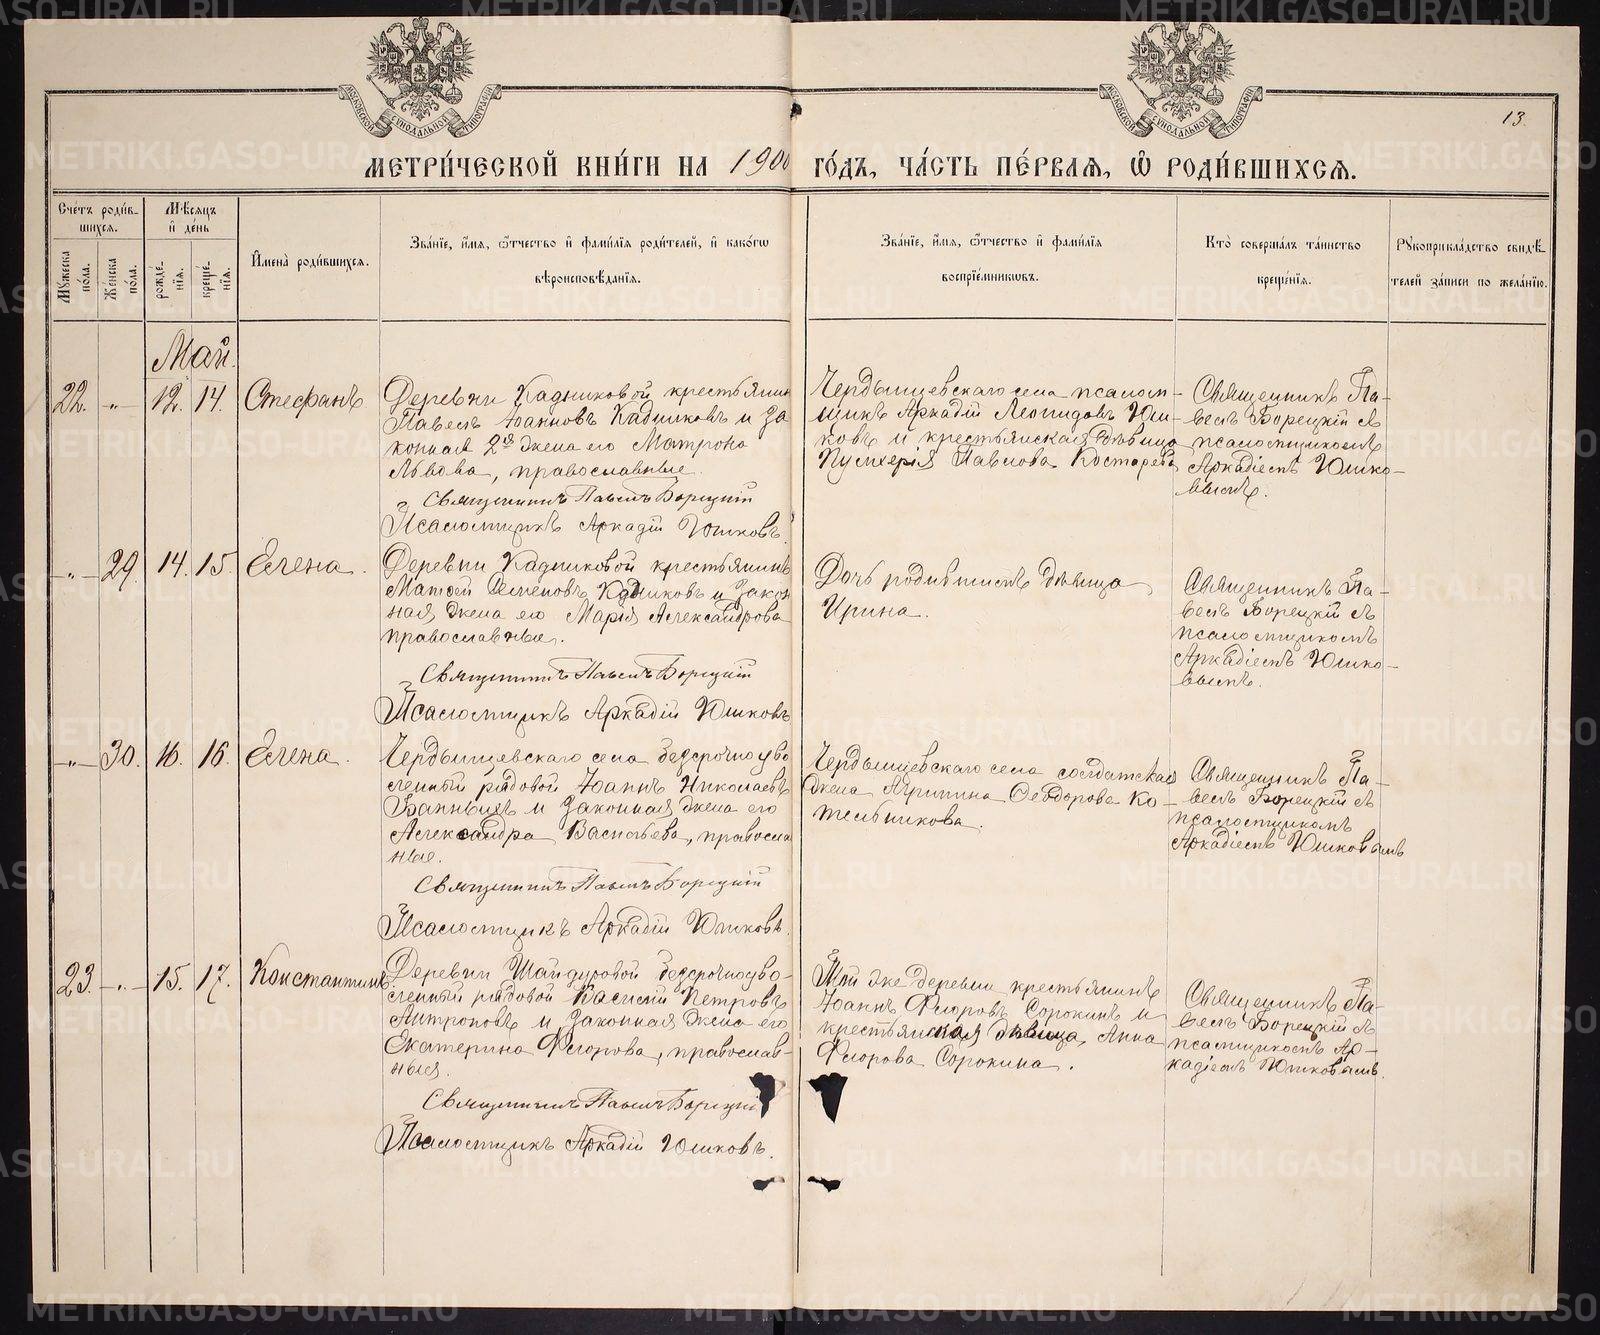 13.
МЕТРИ́ЧЕСКОЙ КНИ́ГИ НА 1900 ГО́ДЪ, ЧА́СТЬ ПЕ́РВАѦ, Ѡ РОДИ́ВШИХСѦ.
Сче́тъ роди́в-
шихсѧ.
Мѹ́жеска по́ла.
Же́нска по́ла.
Мѣ́сѧцъ и де́нь
рожде́-
нїѧ.
креще́-
нїѧ.
Имена̀ роди́вшихсѧ.
Зва́нїе, и́мѧ, ѻ́тчество и фами́лїѧ роди́телей, и како́гѡ
вѣроисповѣ́данїѧ.
Зва́нїе, и́мѧ, ѻ́тчество и фами́лїѧ
воспрїе́мникѡвъ.
Кто̀ соверша́лъ та́инство
креще́нїѧ.
Рꙋкоприкла́дство свидѣ́-
телей за́писи по жела́нїю.
Май.
22. -„- 12. 14. Стефанъ
Деревни Кадниковой крестьянин
Павелъ Іоанновъ Кадниковъ и за
конная 2я жена его Матрона
Львова, православные.
Священникъ Павелъ Борецкій
Псаломщикъ Аркадій Юшковъ.
Чердынцевскаго села псалом-
щикъ Аркадій Леонидовъ Юш-
ковъ и крестьянская дѣвица
Пулхерія Павлова Костарева
Священникъ Па-
велъ Борецкій съ
псаломщикомъ
Аркадіемъ Юшко-
вымъ.
-„- 29. 14. 15. Елена.
Деревни Кадниковой крестьянинъ
Матѳей Семеновъ Кадниковъ и закон
ная жена его Марія Александрова
православные.
Священникъ Павелъ Борецкій
Псаломщикъ Аркадій Юшковъ
Дочь родившихъ дѣвица
Ирина.
Священникъ Па-
велъ Борецкій съ
псаломщикомъ
Аркадіемъ Юшко-
вымъ.
-„- 30. 16. 16. Елена.
Чердынцевскаго села безсрочноуво
ленный рядовой Іоаннъ Николаевъ
и законная жена его
Александра Васильева, правосла
ные.
Священникъ Павелъ Борецкій
Псаломщикъ Аркадій Юшковъ.
Чердынцевскаго села солдатская
жена Агрипина Ѳеодорова Ко-
тельникова.
Священникъ Па-
велъ Борецкій съ
псаломщикомъ
Аркадіемъ Юшковымъ
23. -„- 15. 17. Константинъ.
Деревни Шайдуровой безсрочноуво-
ленный рядовой Василій Петровъ
Антроповъ и законная жена его
Екатерина Ѳегорова, православ-
ныя.
Священникъ Павелъ Борецкі
Псаломщикъ Аркадій Юшковъ.
Той же деревни крестьянинъ
Іоаннъ Ѳегоровъ Сорокинъ и
крестьянская дѣвица, Анна
Ѳегорова Сорокина.
Священникъ Па-
велъ Борецкій съ
псаломщикомъ Ар-
кадіемъ Юшковымъ.
METRIKI.GASO-URAL.RU